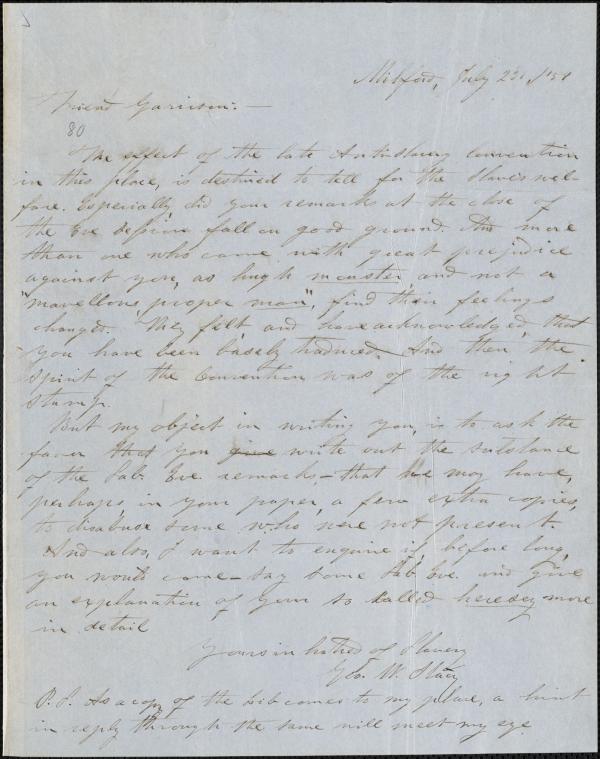 Milford, July 23, /51
Friend Garrison: —
80
The effect of the late Antislavery Convention
in this place, is destined to tell for the slaves wel-
fare. Especially did your remarks at the close of
the Eve session fall on good ground. And more
than one who came with great prejudice
against you, as hugh monster and not a
"marvellous, proper man", find their feelings
changed. They felt, and have acknowledged, that
you have been basely traduced. And then the
spirit of the Convention was of the right
stamp.
But my object in writing you, is to ask the
favor that you give write out the substance
of the Sab. Eve. remarks – that we may have,
perhaps, in your paper, a few extra copies,
to disabuse some who were not present.
And also, I want to enquire if, before long,
you would come – say some Sab. Eve. and give
an explanation of your so called heresey more
in detail
Yours in hatred of Slavery
Geo. W. Stacy
P.S. As a copy of the Lib comes to my place, a hint
in reply through the same will meet my eye.